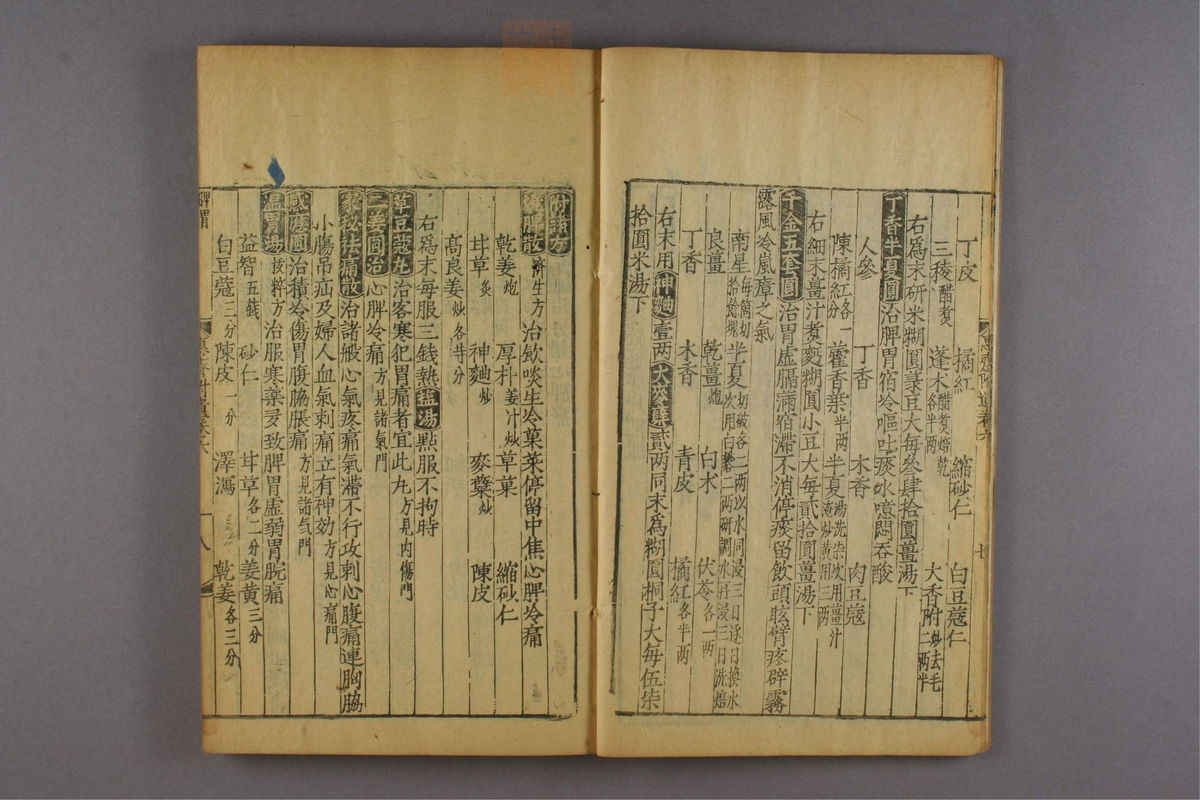 丁皮 橘紅 縮砂仁 白豆蔻仁
三稜醋煮 蓬术醋煮焙乾各半两 大香附炒去毛二两半
右爲末研米糊圓菉豆大每叁肆拾圓薑湯下
丁香半夏圓治脾胃宿冷嘔吐痰水噫悶吞酸
人參 丁香 木香 肉豆蔻
陳橘紅各一分 藿香葉半两 半夏湯洗柒次用薑汁淹炒黄用三两
右細末薑汁煮麪糊圓小豆大每貳拾圓薑湯下
千金五套圓治胃虛膈滿宿滯不消停痰留飲頭眩臂疼辟霧
露風冷嵐瘴之氣
南星每箇切拾餘塊 半夏切破各二两以水同浸三日逐日換水次用白礬二两研調水再浸三日洗焙
良薑 乾薑炮 白术 茯苓各一两
丁香 木香 青皮 橘紅各半两
右末用神麯壹两大麥糵貳两同末爲糊圓桐子大每伍柒
拾圓米湯下
附諸方
脾散濟生方治飲啖生冷菓菜停留中焦心脾冷痛
乾姜炮 厚朴姜汁炒 草菓 縮砂仁
甘草炙 神麯炒 麥糵炒 陳皮
高良姜炒各等分
右爲末每服三錢熱盐湯點服不拘時
草豆蔻丸治客寒犯胃痛者宜此丸方見内傷門
二姜圓治心脾冷痛方見諸氣門
家秘祛痛散治諸般心氣疼痛氣滯不行攻刺心腹痛連胸脇
小腸吊疝及婦人血氣刺痛立有神効方見心痛門
感應圓治積冷傷胃腹脇脹痛方見諸氣門
温胃湯拔粹方治服寒藥多致脾胃虛弱胃脘痛
益智五錢 砂仁 甘草各二分 姜黄三分
白豆蔻三分 陳皮一分 澤瀉 乾姜各三分
脾胃
八